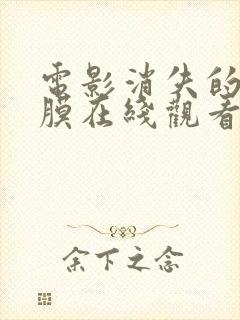 電影消失的
膜在綫觀看
余下之念